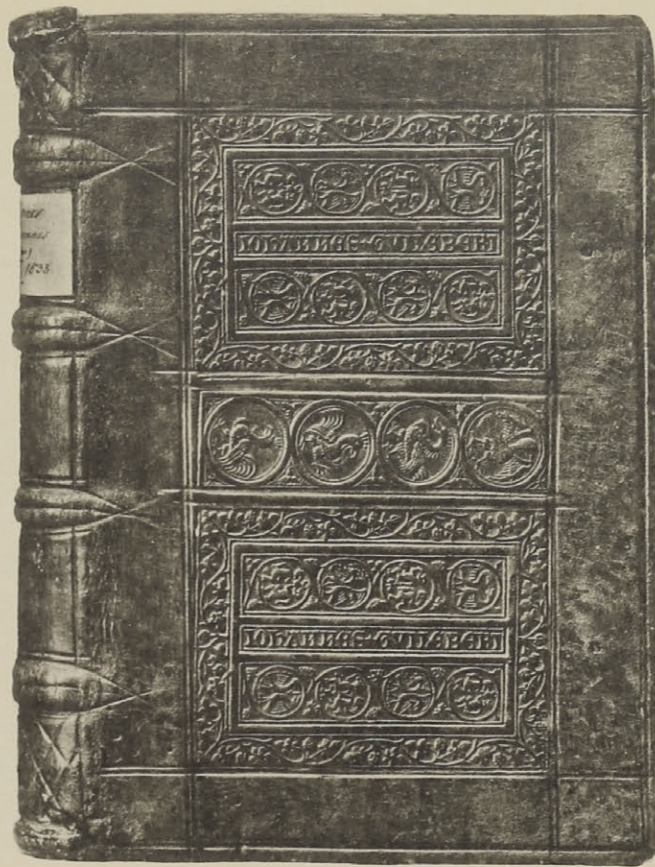 1538
IOHANNES · GVILEBERT
IOHANNES · GVILEBERT